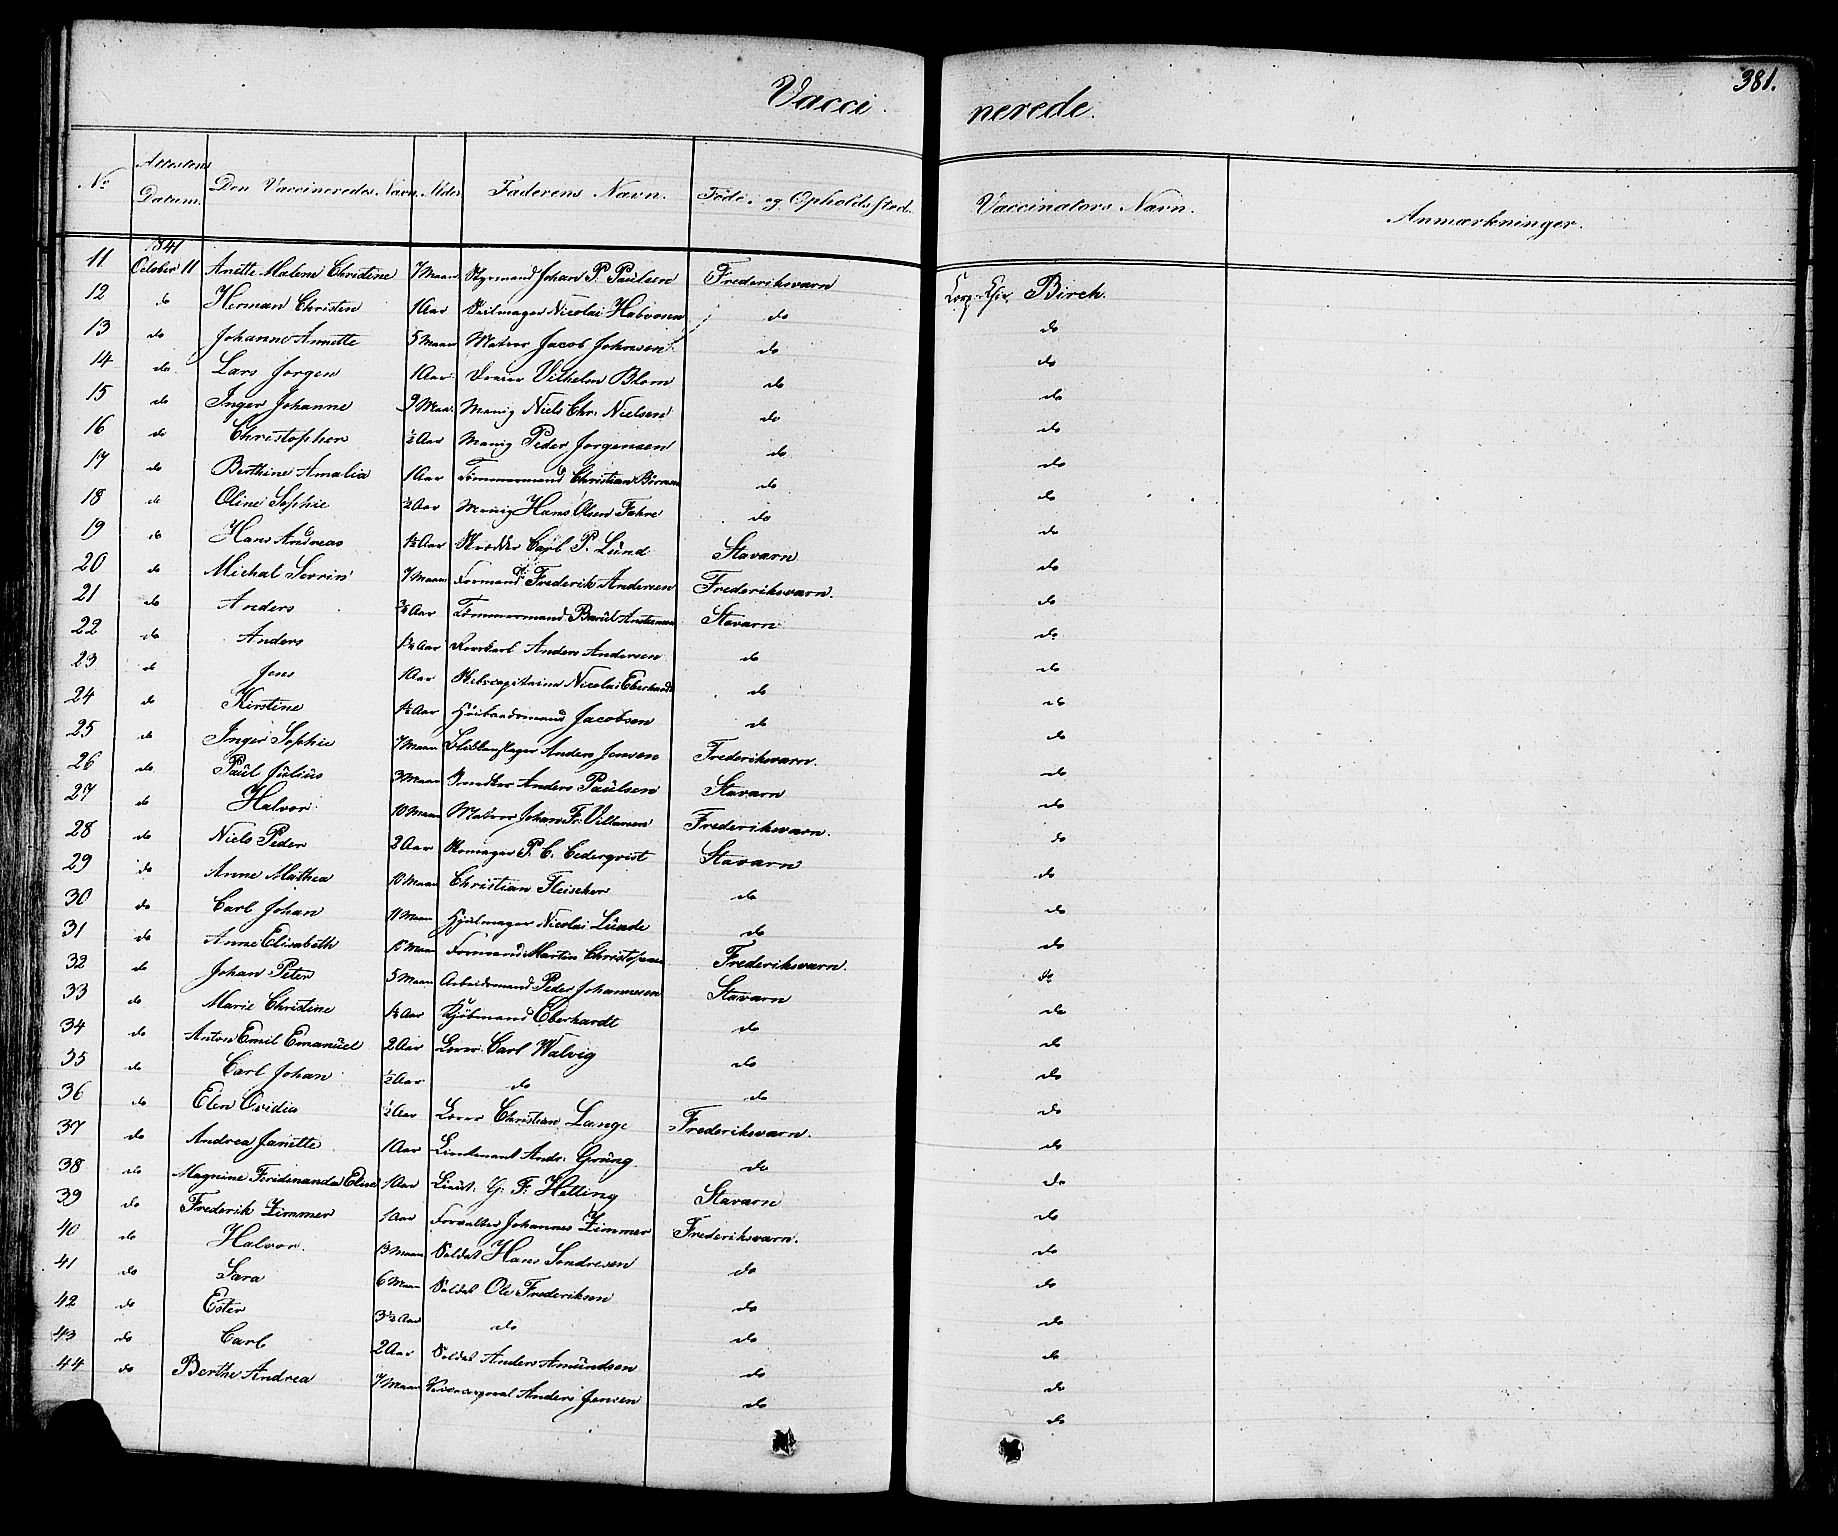 381.
Vaccinerede.
No | Attestens Datum. | Den Vaccineredes Navn | Alder | Faderens Navn. | Føde- og Opholdssted. | Vaccinators Navn. | Anmærkninger.
1841
11 October 11 Anette Malene Christine 7 Maan Styrmand Johan P. Paulsen Frederiksværn Corp. Birch.
12 do Herman Christen 1 Aar Seilmager Nicolai Halvorsen do do
13 do Johanne Annette 5 Maan Matros Jacob Johnsen do do
14 do Lars Jørgen 1 Aar Vilhelm Blom do do
15 do Inger Johanne 9 Maa: Menig Niels Chr. Nielsen do do
16 do Christopher ½ Aar Menig Peder Jørgensen do do
17 do Berthine Amalia 1 Aar Tømmermand Christian do do
18 do Oline Sophie ½ Aar Menig Hans Olsen Fahre do do
19 do Hans Andreas 1½ Aar Skrædder Carl P. Lund Staværn do
20 do Michal Sørrin 7 Maan Formand Frederik Andersen Frederiksværn. do
21 do Anders Aar Tømmermand Andersen Staværn do
22 do Anders 1½ Aar Anders Andersen do do
23 do Jens 1 Aar Skibscapitaine Nicolai Eberhardt do do
24 do Kirstine 1½ Aar Høibaadsmand Jacobsen do do
25 do Inger Sophie 7 Maan Anders Jensen Frederiksværn. do
26 do Paul Julius 3 Maan Snedker Anders Paulsen Staværn do
27 do Halvor 10 Maan Matros Johan Fr. Frederiksværn. do
28 do Niels Peder 2 Aar Skomager P. C. Cederqvist Staværn do
29 do Anne Mathea 10 Maan Christian Fleischer do do
30 do Carl Johan 11 Maan Hjulmager Nicolai Lunde do do
31 do Anne Elisabeth Maan Formand Martin Christophersen Frederiksværn. do
32 do Johan Peter 5 Maan Arbeidsmand Peder Johannesen Staværn do
33 do Marie Christine 1½ Aar Kjøbmand Eberhardt do do
34 do Anton Emil Emanuel 2 Aar Carl Walvig do do
35 do Carl Johan ½ Aar do do do
36 do Elen Ovidia ½ Aar Christian Lange Frederiksværn. do
37 do Andrea Janette 1 Aar Lieutenant Andr. Grüng do do
38 do Magnine Feridinanda Eline 1 Aar Lieut. G. F. Helling Staværn do
39 do Frederik Zimmer 1 Aar Forvalter Johannes Zimmer Frederiksværn. do
40 do Halvor. 13 Maan Soldat Hans Sondresen do do
41 do Sara 6 Maan Soldat Ole Frederiksen do do
42 do Ester 3½ Aar do do do
43 do Carl 2 Aar Soldat Anders Amundsen do do
44 do Berthe Andrea 7 Maan Anders Jensen do do